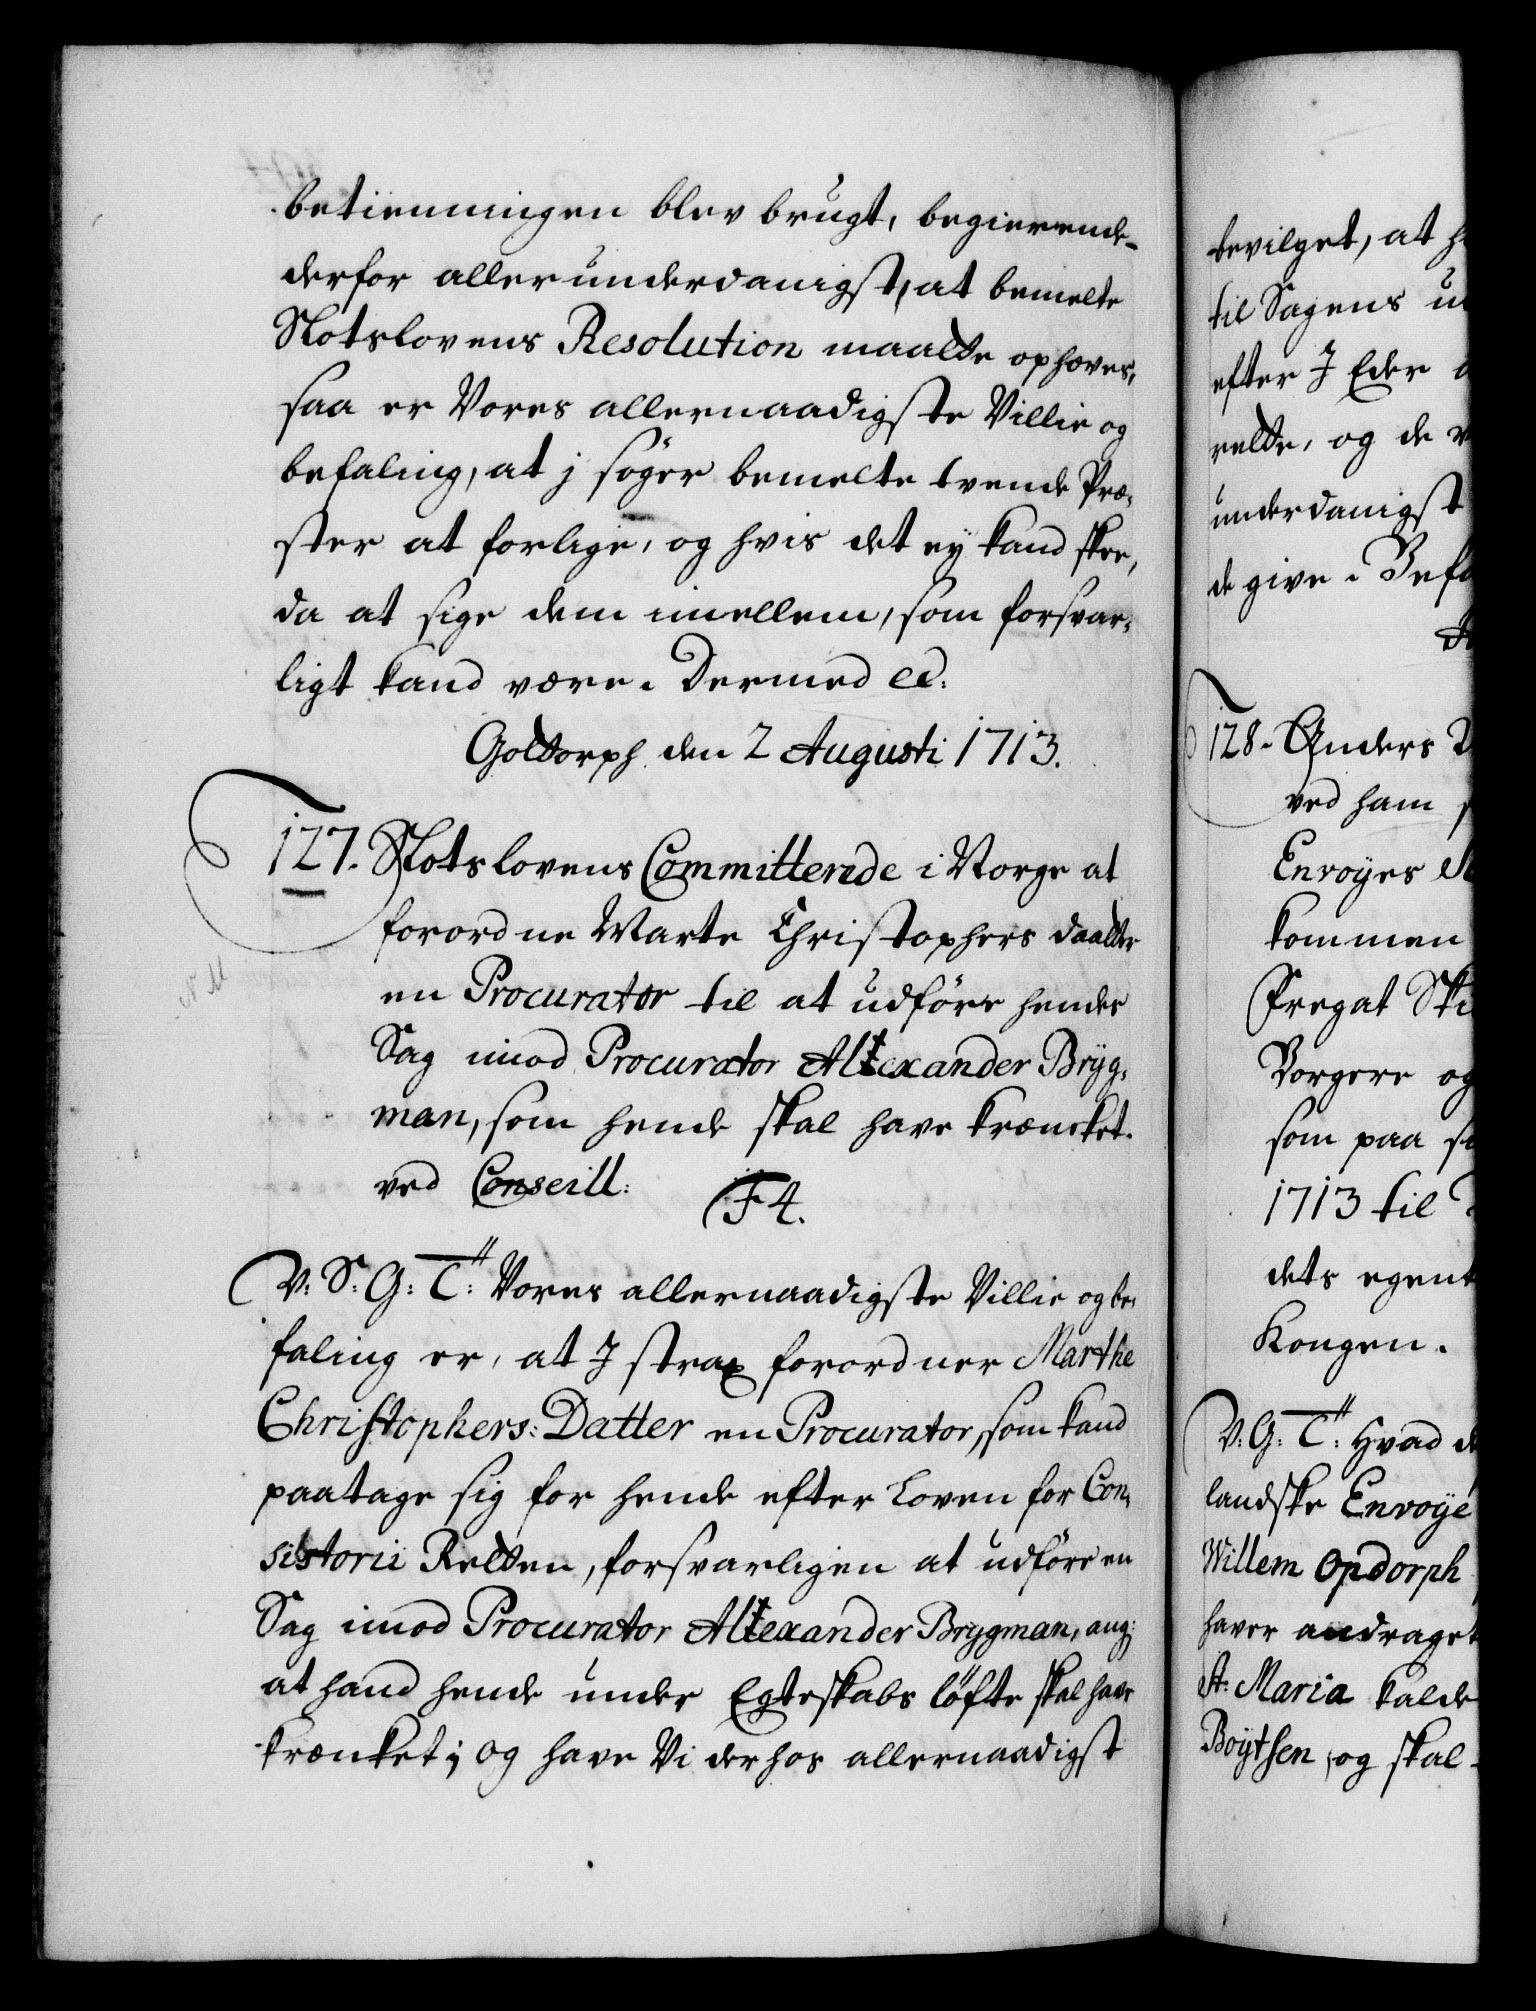 betienningen blev brugt, begierende
derfor allerunderdanigst, at bemelte
Slotslovens Resolution maatte ophæves,
saa er Vores allernaadigste Villie og
befaling, at j søger bemelte tvende Præ-
ster at forlige, og hvis det ey kand skee,
da at sige dem imellem, som forsvar-
ligt kand være. Dermed etc:
Gottorph den 2 Augusti 1713.
127. Slotslovens Committerede i Norge at
forordne Marte Christophers daatter
en Procurator til at udføre hendes
Sag imod Procurator Alexander Brÿg-
man, som hende skal have krencket.
ved Conseill:
F4.
V: S: G: T: Vores allernaadigste Villie og be-
faling er, at I strax forordner Marthe
Christophers: Datter en Procurator, som kand
paatage sig for hende efter Loven for Con-
sistorii Retten, forsvarligen at udføre en
Sag imod Procurator Alexander Brygman, ang:
at hand hende under Egteskabs løfte skal have
krænket; og have Vi derhos allernaadigst
bevilget, at
til Sagens
efter I Eder
rette, og de
underdanigst
de give.
128. Anders
ved ham
Envoyes
kommen
Fregat
Borgere og
som paa
1713 til
dets egent
Kongen.
V: G: T: Hvad
landske Envoÿé
Willem Opdorph
haver andraget
St: Maria kalde
Boÿtsen, og skal